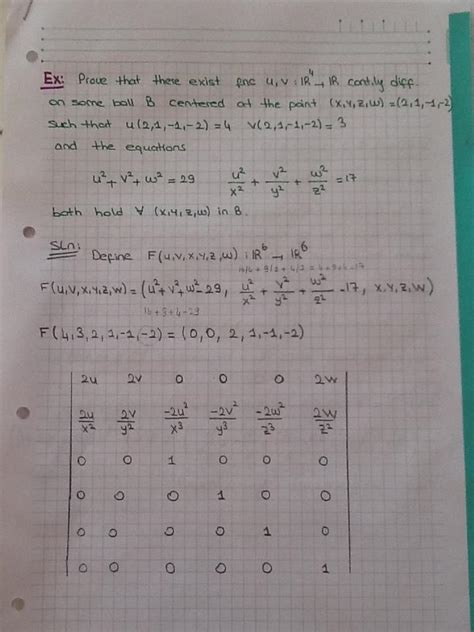 Ex: Prove that there exist fnc u,v : IR⁴ → IR cont.ly diff.
on some ball B centered at the point (x,y,z,w)=(2,1,-1,-2)
such that u(2,1,-1,-2)=4 v(2,1,-1,-2)=3
and the equations
u²+v²+w²=29 u²/x² + v²/y² + w²/z² =17
both hold ∀ (x,y,z,w) in B.
Sln: Define F(u,v,x,y,z,w) : IR⁶ → IR⁶
F(u,v,x,y,z,w)=(u²+v²+w²-29, u²/x² + v²/y² + w²/z² -17, x,y,z,w)
F(4,3,2,1,-1,-2)=(0,0,2,1,-1,-2)
| 2u 2v 0 0 0 2w |
| 2u/x² 2v/y² -2u²/x³ -2v²/y³ -2w²/z³ 2w/z² |
| 0 0 1 0 0 0 |
| 0 0 0 1 0 0 |
| 0 0 0 0 1 0 |
| 0 0 0 0 0 1 |